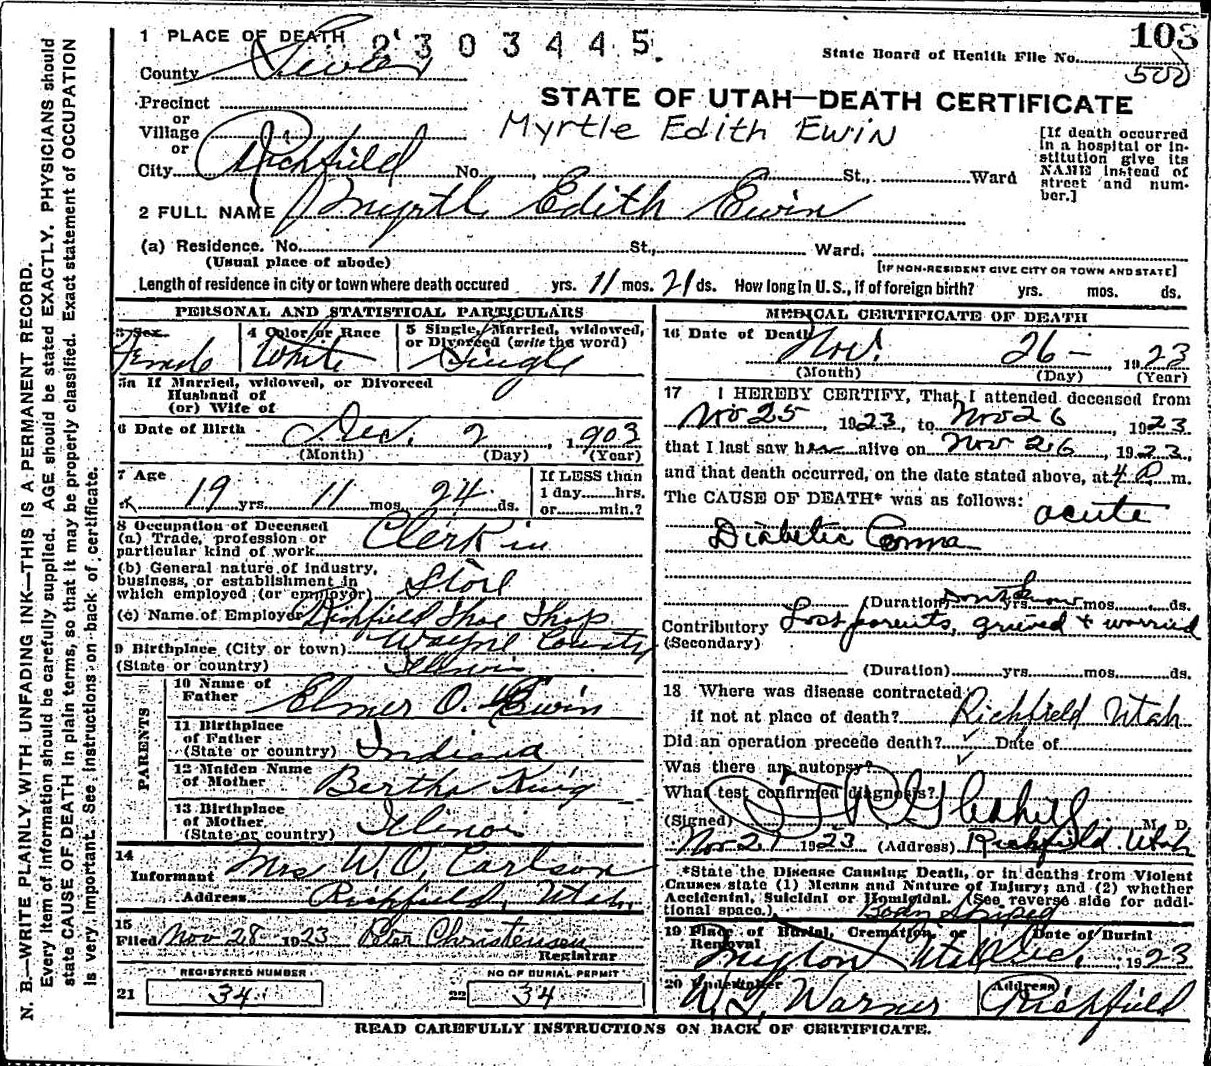 N. B.—WRITE PLAINLY WITH UNFADING INK—THIS IS A PERMANENT RECORD.
Every item of information should be carefully supplied. AGE should be stated EXACTLY. PHYSICIANS should
state CAUSE OF DEATH in plain terms, so that it may be properly classified. Exact statement of OCCUPATION
is very important. See instructions on back of certificate.
1 PLACE OF DEATH 2303445.
County Sevier
State Board of Health File No. 108
500
STATE OF UTAH—DEATH CERTIFICATE
Precinct
or
Village
or
City Richfield No. , St., Ward
Myrtle Edith Ewin
[If death occurred
in a hospital or in-
stitution give its
NAME instead of
street and num-
ber.]
2 FULL NAME Myrtle Edith Ewin
(a) Residence. No. St., Ward.
(Usual place of abode) [IF NON-RESIDENT GIVE CITY OR TOWN AND STATE]
Length of residence in city or town where death occured yrs. 11 mos. 21 ds. How long in U. S., if of foreign birth? yrs. mos. ds.
PERSONAL AND STATISTICAL PARTICULARS
3 Sex Female
4 Color or Race White
5 Single, Married, widowed,
or Divorced (write the word)
Single
5a If Married, widowed, or Divorced
Husband of
(or) Wife of
6 Date of Birth Dec. 2, 1903
(Month) (Day) (Year)
7 Age 19 yrs. 11 mos. 24 ds.
If LESS than
1 day hrs.
or min.?
8 Occupation of Deceased
(a) Trade, profession or
particular kind of work Clerk in
(b) General nature of industry,
business, or establishment in
which employed (or employer) Store
(c) Name of Employer Richfield Shoe Shop
9 Birthplace (City or town) Wayne County
(State or country) Illinois
PARENTS
10 Name of
Father Elmer O. Ewin
11 Birthplace
of Father
(State or country) Indiana
12 Maiden Name
of Mother Bertha King
13 Birthplace
of Mother
(State or country) Illinois
14
Informant Mrs W. O. Carlson
Address Richfield, Utah.
15
Filed Nov 28 1923 Peter Christensen
Registrar
REGISTERED NUMBER NO OF BURIAL PERMIT
21 34 22 34
MEDICAL CERTIFICATE OF DEATH
16 Date of Death Nov. 26— 1923
(Month) (Day) (Year)
17 I HEREBY CERTIFY, That I attended deceased from
Nov 25, 1923, to Nov 26, 1923
that I last saw her alive on Nov 26, 1923,
and that death occurred, on the date stated above, at 4 P. m.
The CAUSE OF DEATH* was as follows: acute
Diabetic Comma
(Duration) dont know yrs. mos. ds.
Contributory Lost parents, grieved & worried
(Secondary)
(Duration) yrs. mos. ds.
18 Where was disease contracted
if not at place of death? Richfield Utah
Did an operation precede death? Date of
Was there an autopsy?
What test confirmed diagnosis?
(Signed) M D.
Nov 27 1923 (Address) Richfield Utah
*State the Disease Causing Death, or in deaths from Violent
Causes state (1) Means and Nature of Injury; and (2) whether
Accidental, Suicidal or Homicidal. (See reverse side for addi-
tional space.) Body Shiped
19 Place of Burial, Cremation or Date of Burial
Removal
Myton Utah Dec. 1923
20 Undertaker Address
Warner Richfield
READ CAREFULLY INSTRUCTIONS ON BACK OF CERTIFICATE.